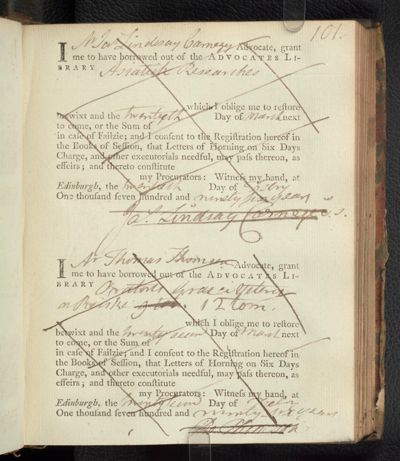 101.
I Mr Jas. Lindsay Carnegy Advocate, grant
me to have borrowed out of the ADVOCATES LI-
BRARY Asiatick Researches
which I oblige me to restore
betwixt and the twentyeth Day of March next
to come, or the Sum of
in case of Failzie; and I consent to the Registration hereof in
the Books of Session, that Letters of Horning on Six Days
Charge, and other executorials needful, may pass thereon, as
effeirs; and thereto constitute
my Procurators: Witness my hand, at
Edinburgh, the twentieth Day of
One thousand seven hundred and ninety six years
Jas. Lindsay Carnegie
I Mr Thomas Thomson Advocate, grant
me to have borrowed out of the ADVOCATES LI-
BRARY Oratores Graeci
12 tom.
which I oblige me to restore
betwixt and the twenty second Day of March next
to come, or the Sum of
in case of Failzie; and I consent to the Registration hereof in
the Books of Session, that Letters of Horning on Six Days
Charge, and other executorials needful, may pass thereon, as
effeirs; and thereto constitute
my Procurators: Witness my hand, at
Edinburgh, the twenty second Day of
One thousand seven hundred and ninety six years